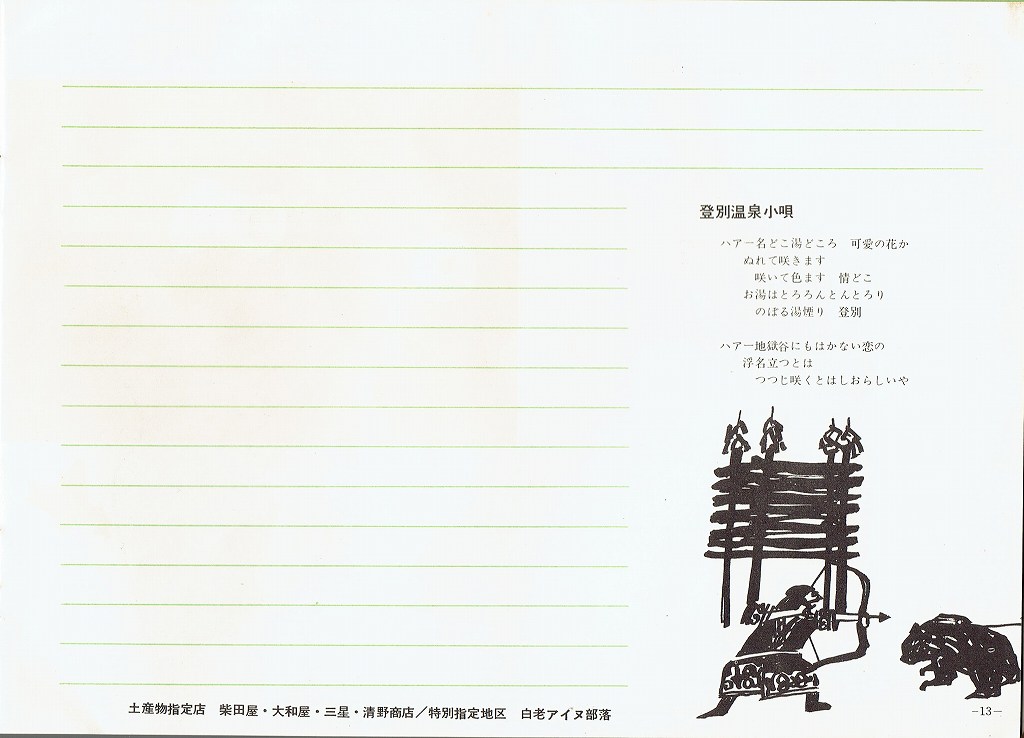 登別温泉小唄
ハアー名どこ湯どころ　可愛の花か
ぬれて咲きます
咲いて色ます　情どこ
お湯はとろろんとんとろり
のぼる湯煙り　登別
ハアー地獄谷にもはかない恋の
浮名立つとは
つつじ咲くとはしおらしいや
土産物指定店　柴田屋・大和屋・三星・清野商店／特別指定地区　白老アイヌ部落
－13－